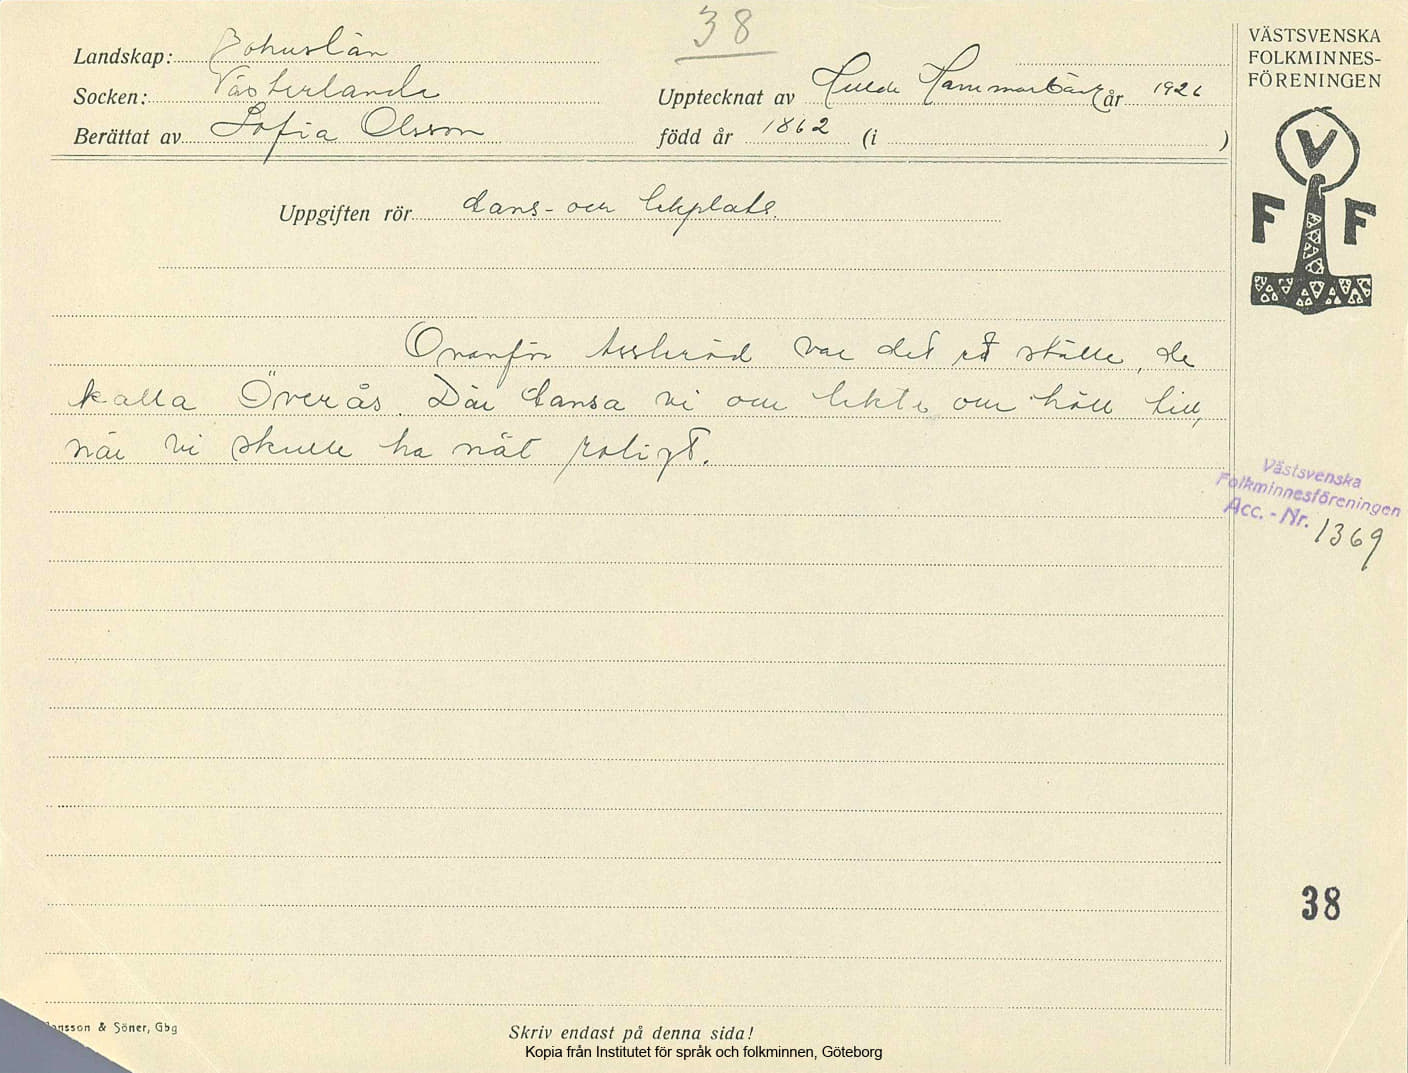 38
Landskap: Bohuslän
Socken: Västerlanda
Upptecknat av Hulda Hammarbäck år 1926
Berättat av Sofia Olsson född år 1862 (i )
Uppgiften rör dans- och lekplats.
Ovanför Assleröd var det ett ställe, de
kalla Överås. Där dansa vi och lekte och höll till,
när vi skulle ha nåt roligt.
VÄSTSVENSKA
FOLKMINNES-
FÖRENINGEN
V
F F
Västsvenska
Folkminnesföreningen
Acc. - Nr. 1369
38
nsson & Söner, Gbg
Skriv endast på denna sida!
Kopia från Institutet för språk och folkminnen, Göteborg